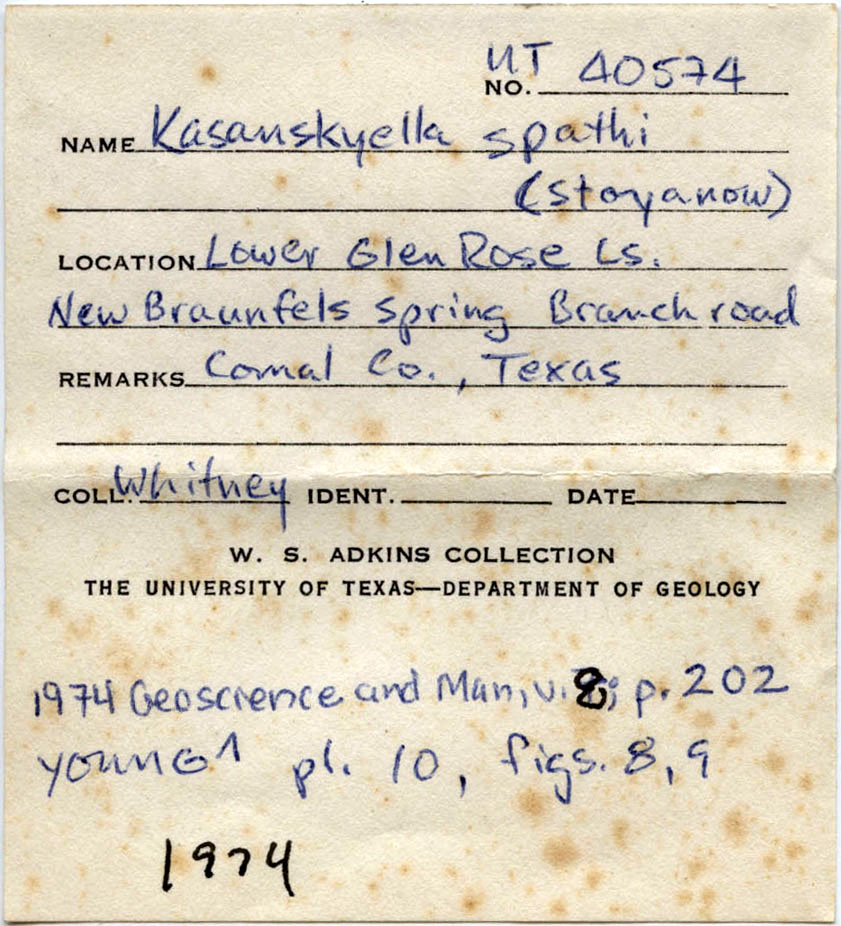 UT
NO. 40574
NAME Kasanskyella spathi
(Stoyanow)
LOCATION Lower Glen Rose Ls.
New Braunfels Spring Branch road
REMARKS Comal Co., Texas
COLL. Whitney IDENT. DATE
W. S. ADKINS COLLECTION
THE UNIVERSITY OF TEXAS—DEPARTMENT OF GEOLOGY
1974 Geoscience and Man, v. 8; p. 202
YOUNG ^ pl. 10, figs. 8, 9
1974